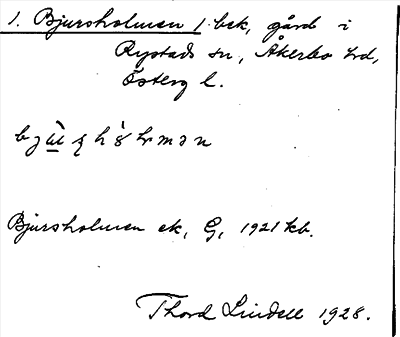 1. Bjursholmen 1. bek, gård i
Rystads sn, Åkerbo hrd,
Österg l.
Bjursholmen ek, G, 1921 kb.
Thord Lindell 1928.